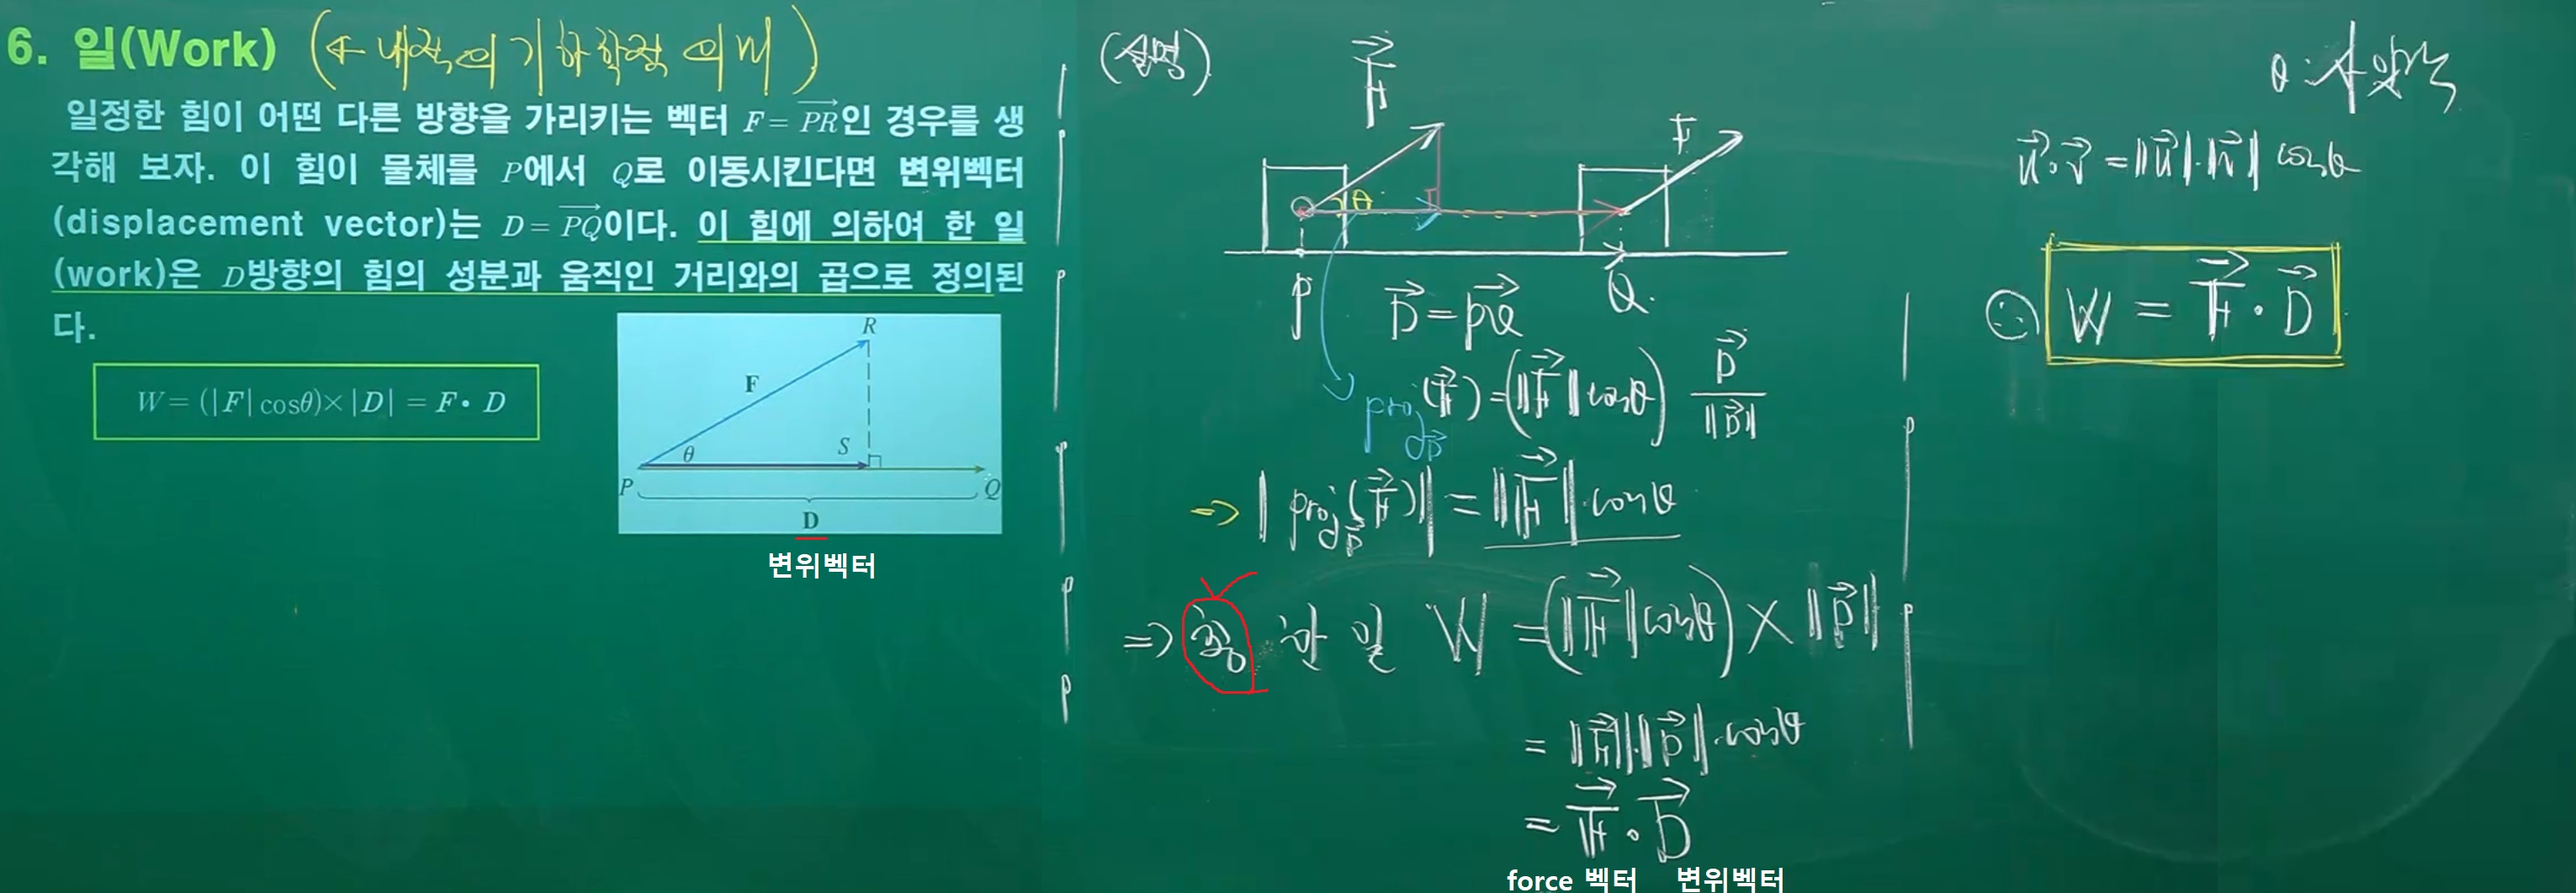 6. 일(Work) (← 내적의 기하학적 의미)
일정한 힘이 어떤 다른 방향을 가리키는 벡터 F = \overrightarrow{PR}인 경우를 생
각해 보자. 이 힘이 물체를 P에서 Q로 이동시킨다면 변위벡터
(displacement vector)는 D = \overrightarrow{PQ}이다. 이 힘에 의하여 한 일
(work)은 D방향의 힘의 성분과 움직인 거리와의 곱으로 정의된
다.
W = (|F| cosθ)×|D| = F• D
R
F
θ
S
P
Q
D
변위벡터
(설명)
\vec{F}
F
θ
P
Q
\vec{D} = \overrightarrow{PQ}
proj_{\vec{D}}(\vec{F}) = (‖\vec{F}‖cosθ) \frac{\vec{D}}{‖\vec{D}‖}
⇒ ‖proj_{\vec{D}}(\vec{F})‖ = ‖\vec{F}‖·cosθ
⇒ 한 일 W = (‖\vec{F}‖cosθ) × ‖\vec{D}‖
= ‖\vec{F}‖·‖\vec{D}‖·cosθ
= \vec{F}·\vec{D}
force 벡터 변위벡터
θ : 사잇각
\vec{u}·\vec{v} = ‖\vec{u}‖·‖\vec{v}‖ cosθ
W = \vec{F}·\vec{D}